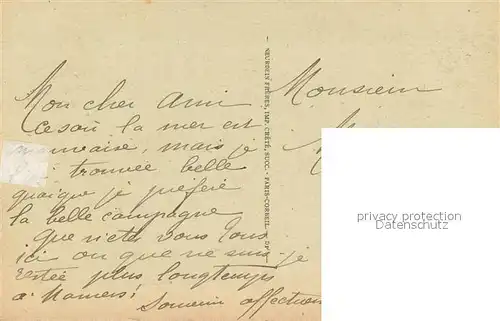 Mon cher Ami
Ce soir la mer est
mauvaise, mais je
trouvée belle
quoique je préfère
la belle campagne
que n'etes vous tous
ici ou que ne suis-je
restée plus longtemps
à Mamers!
Souvenir affectueux
Monsieur
NEURDEIN FRÈRES, IMP. CRÉTÉ, SUCC. - PARIS-CORBEIL
privacy protection
Datenschutz